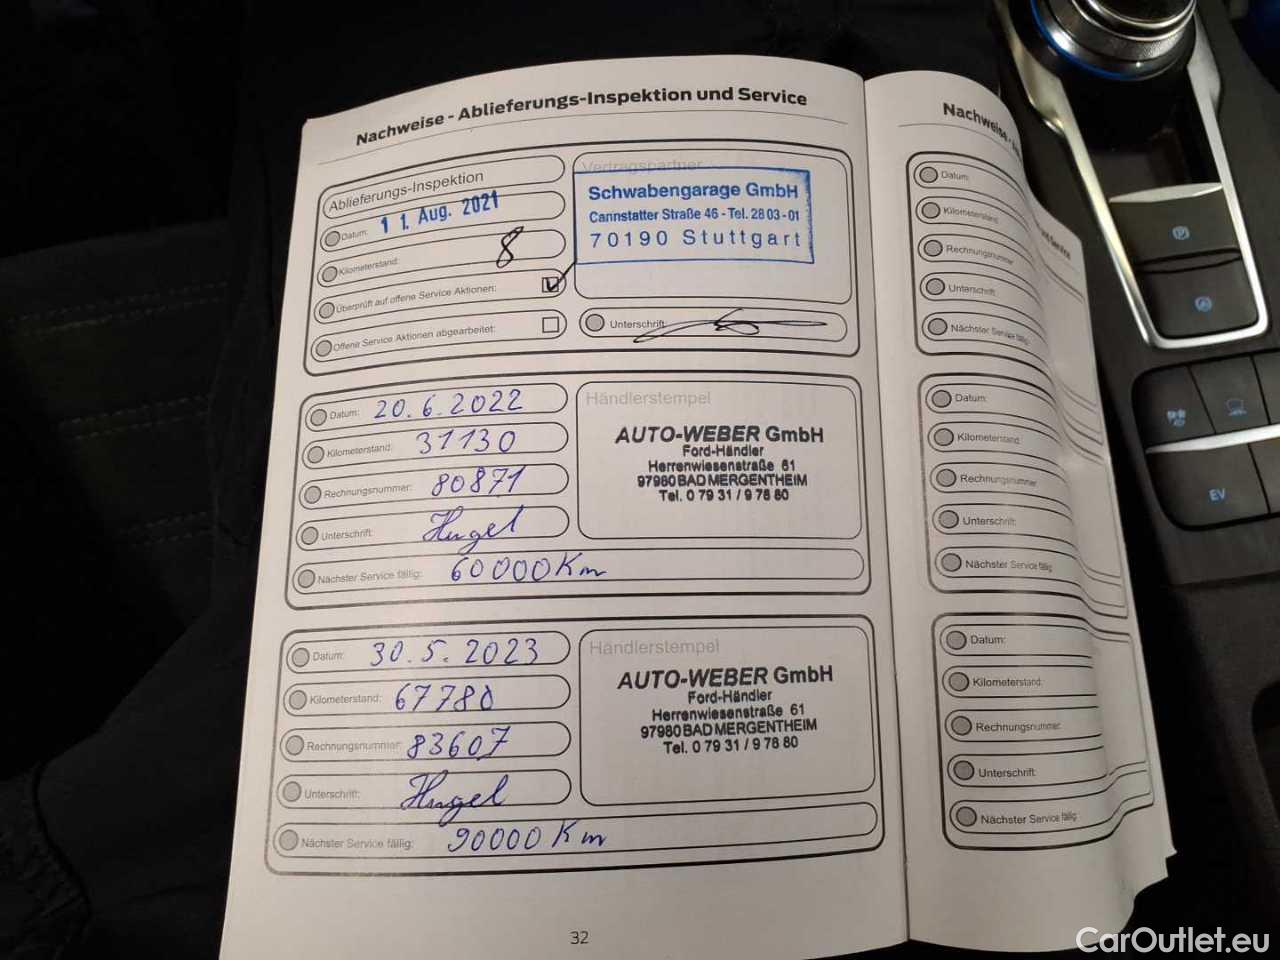 Nachweise - Ablieferungs-Inspektion und Service
Ablieferungs-Inspektion
Datum: 11. Aug. 2021
Kilometerstand: 8
Überprüft auf offene Service Aktionen:
Offene Service Aktionen abgearbeitet:
Vertragspartner
Schwabengarage GmbH
Cannstatter Straße 46 - Tel. 28 03 - 01
70190 Stuttgart
Unterschrift:
Datum: 20.6.2022
Kilometerstand: 31130
Rechnungsnummer: 80871
Unterschrift: Hugel
Nächster Service fällig: 60000 Km
Händlerstempel
AUTO-WEBER GmbH
Ford-Händler
Herrenwiesenstraße 61
97980 BAD MERGENTHEIM
Tel. 0 79 31 / 9 78 80
Datum: 30.5.2023
Kilometerstand: 67780
Rechnungsnummer: 83607
Unterschrift: Hugel
Nächster Service fällig: 90000 Km
Händlerstempel
AUTO-WEBER GmbH
Ford-Händler
Herrenwiesenstraße 61
97980 BAD MERGENTHEIM
Tel. 0 79 31 / 9 78 80
32
Nachweise -
Datum:
Kilometerstand:
Rechnungsnummer
Unterschrift:
Nächster Service fällig:
Datum:
Kilometerstand:
Rechnungsnummer
Unterschrift:
Nächster Service fällig:
Datum:
Kilometerstand:
Rechnungsnummer:
Unterschrift:
Nächster Service fällig:
EV
CarOutlet.eu